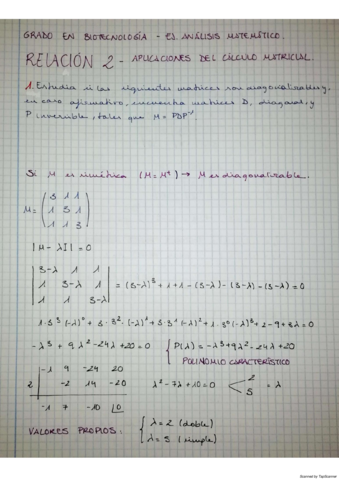 GRADO EN BIOTECNOLOGÍA - EJ. ANÁLISIS MATEMÁTICO.
RELACIÓN 2 - APLICACIONES DEL CÁLCULO MATRICIAL.
1. Estudia si las siguientes matrices son diagonalizables y,
en caso afirmativo, encuentra matrices D, diagonal, y
P invertible, tales que M = PDP⁻¹
Si M es simétrica (M = Mᵗ) → M es diagonalizable.
M = ( 3 1 1
1 3 1
1 1 3 )
|M - λI| = 0
| 3-λ 1 1 |
| 1 3-λ 1 | = (3-λ)³ + 1 + 1 - (3-λ) - (3-λ) - (3-λ) = 0
| 1 1 3-λ |
1·3³(-λ)⁰ + 3·3²·(-λ)¹ + 3·3¹(-λ)² + 1·3⁰(-λ)³ + 2 - 9 + 3λ = 0
-λ³ + 9λ² - 24λ + 20 = 0 { P(λ) = -λ³ + 9λ² - 24λ + 20
POLINOMIO CARACTERÍSTICO
-1 9 -24 20
2 -2 14 -20 λ² - 7λ + 10 = 0 < 2 5 = λ
-1 7 -10 0
VALORES PROPIOS: { λ = 2 (doble)
λ = 5 (simple)
Scanned by TapScanner